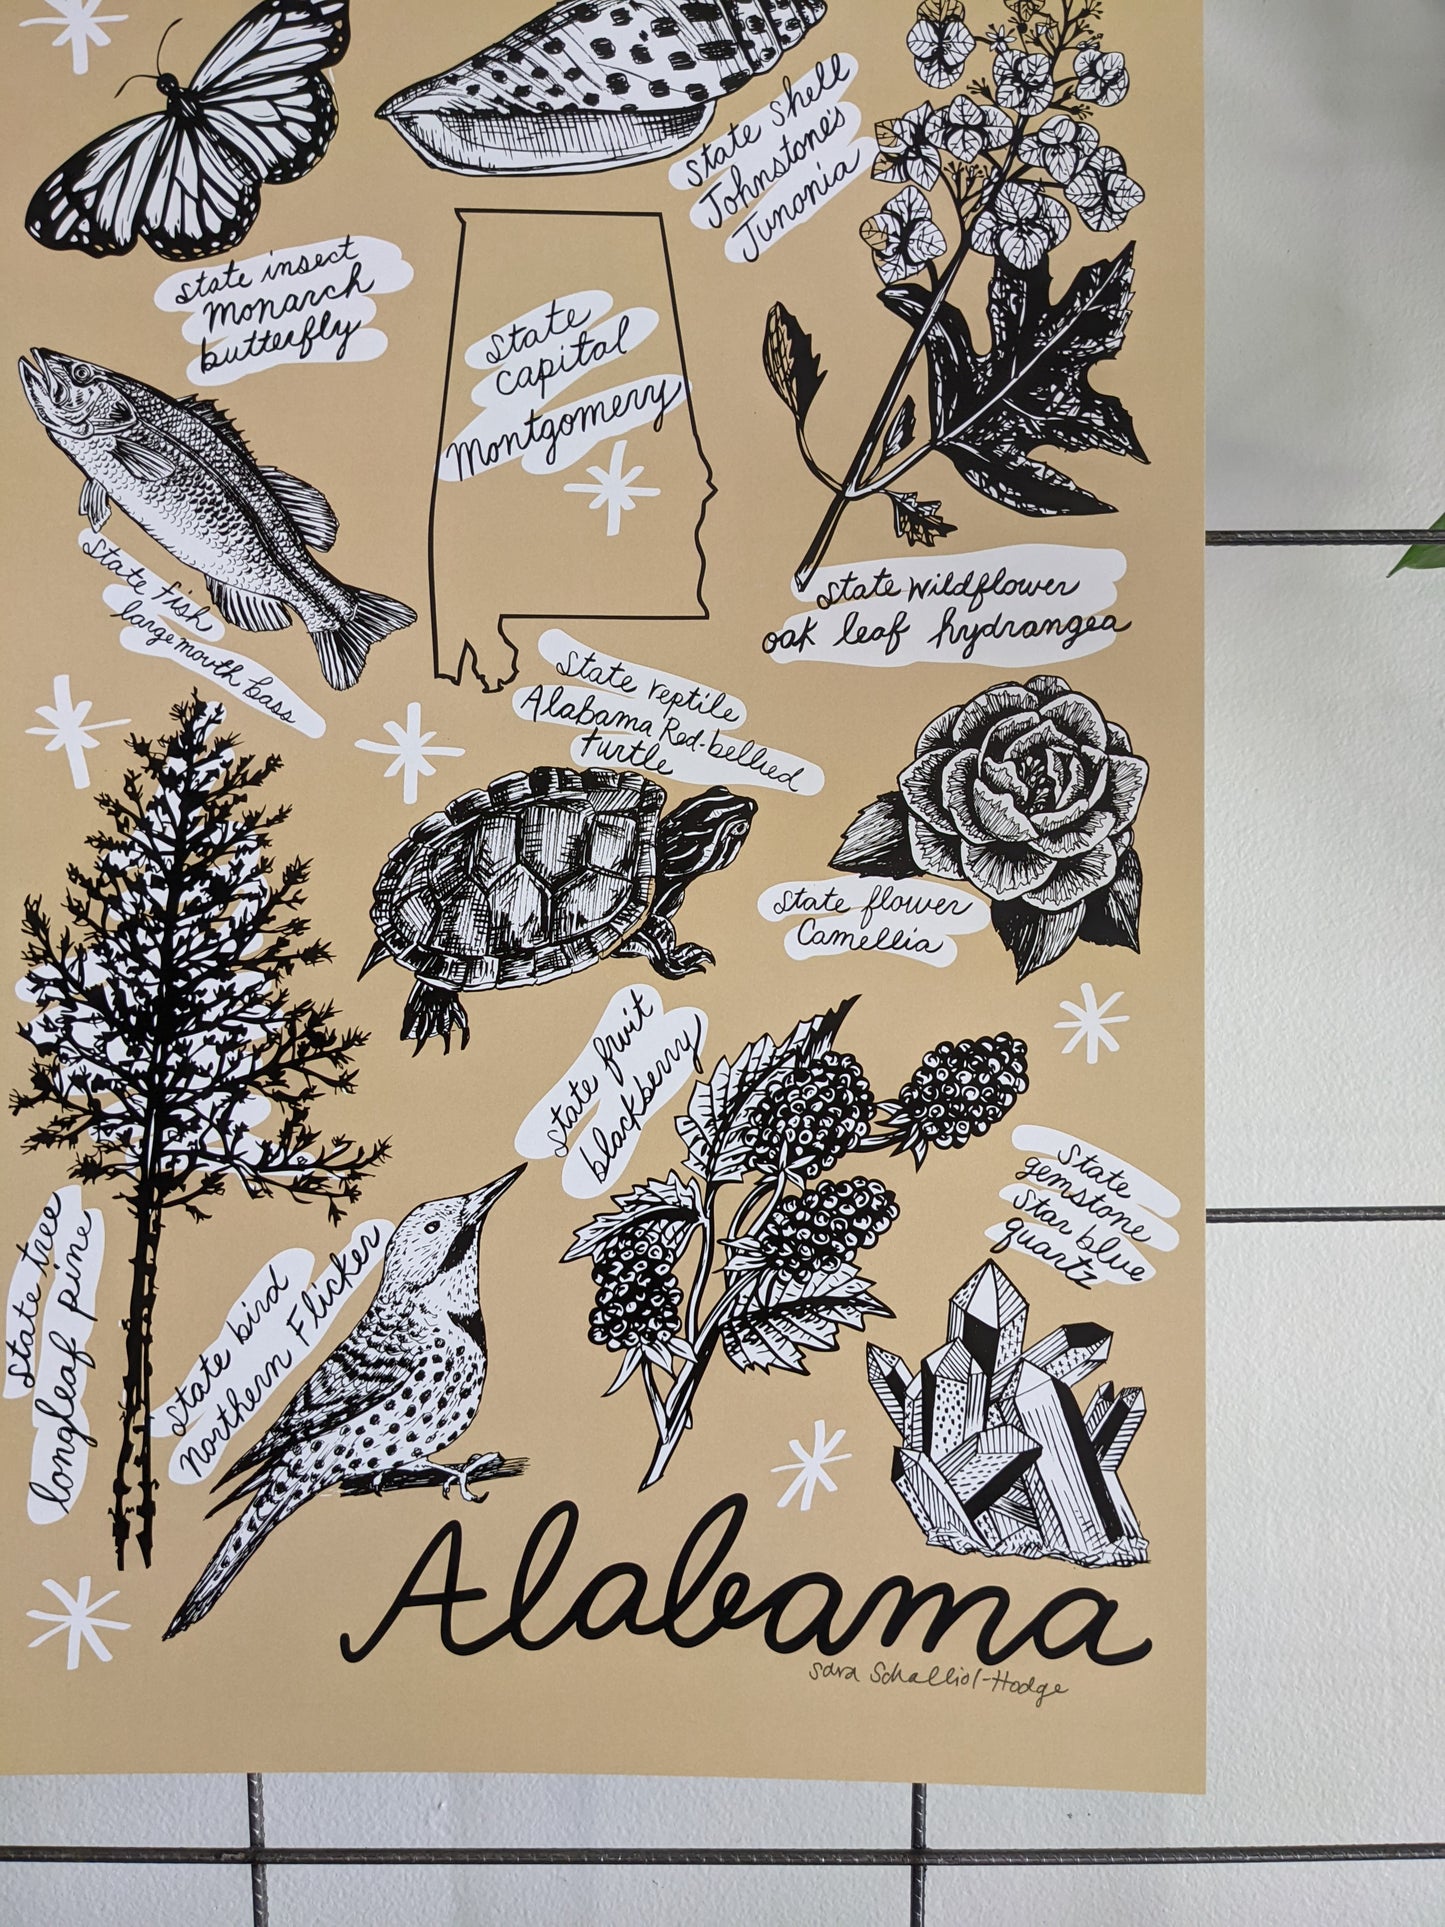 State Shell
Johnstone's
Junonia
state insect
monarch
butterfly
State
capital
Montgomery
State fish
largemouth bass
State wildflower
oak leaf hydrangea
State reptile
Alabama Red-bellied
turtle
State flower
Camellia
State fruit
blackberry
State
gemstone
Star blue
quartz
State tree
longleaf pine
State bird
northern Flicker
Alabama
Sara Schalliol-Hodge